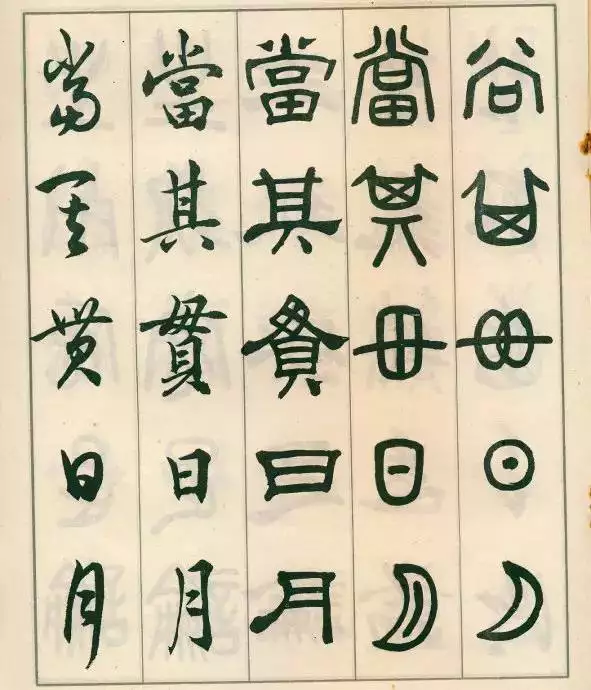 當其貫日月
當其貫日月
當其貫日月
當其貫日月
當其貫日月